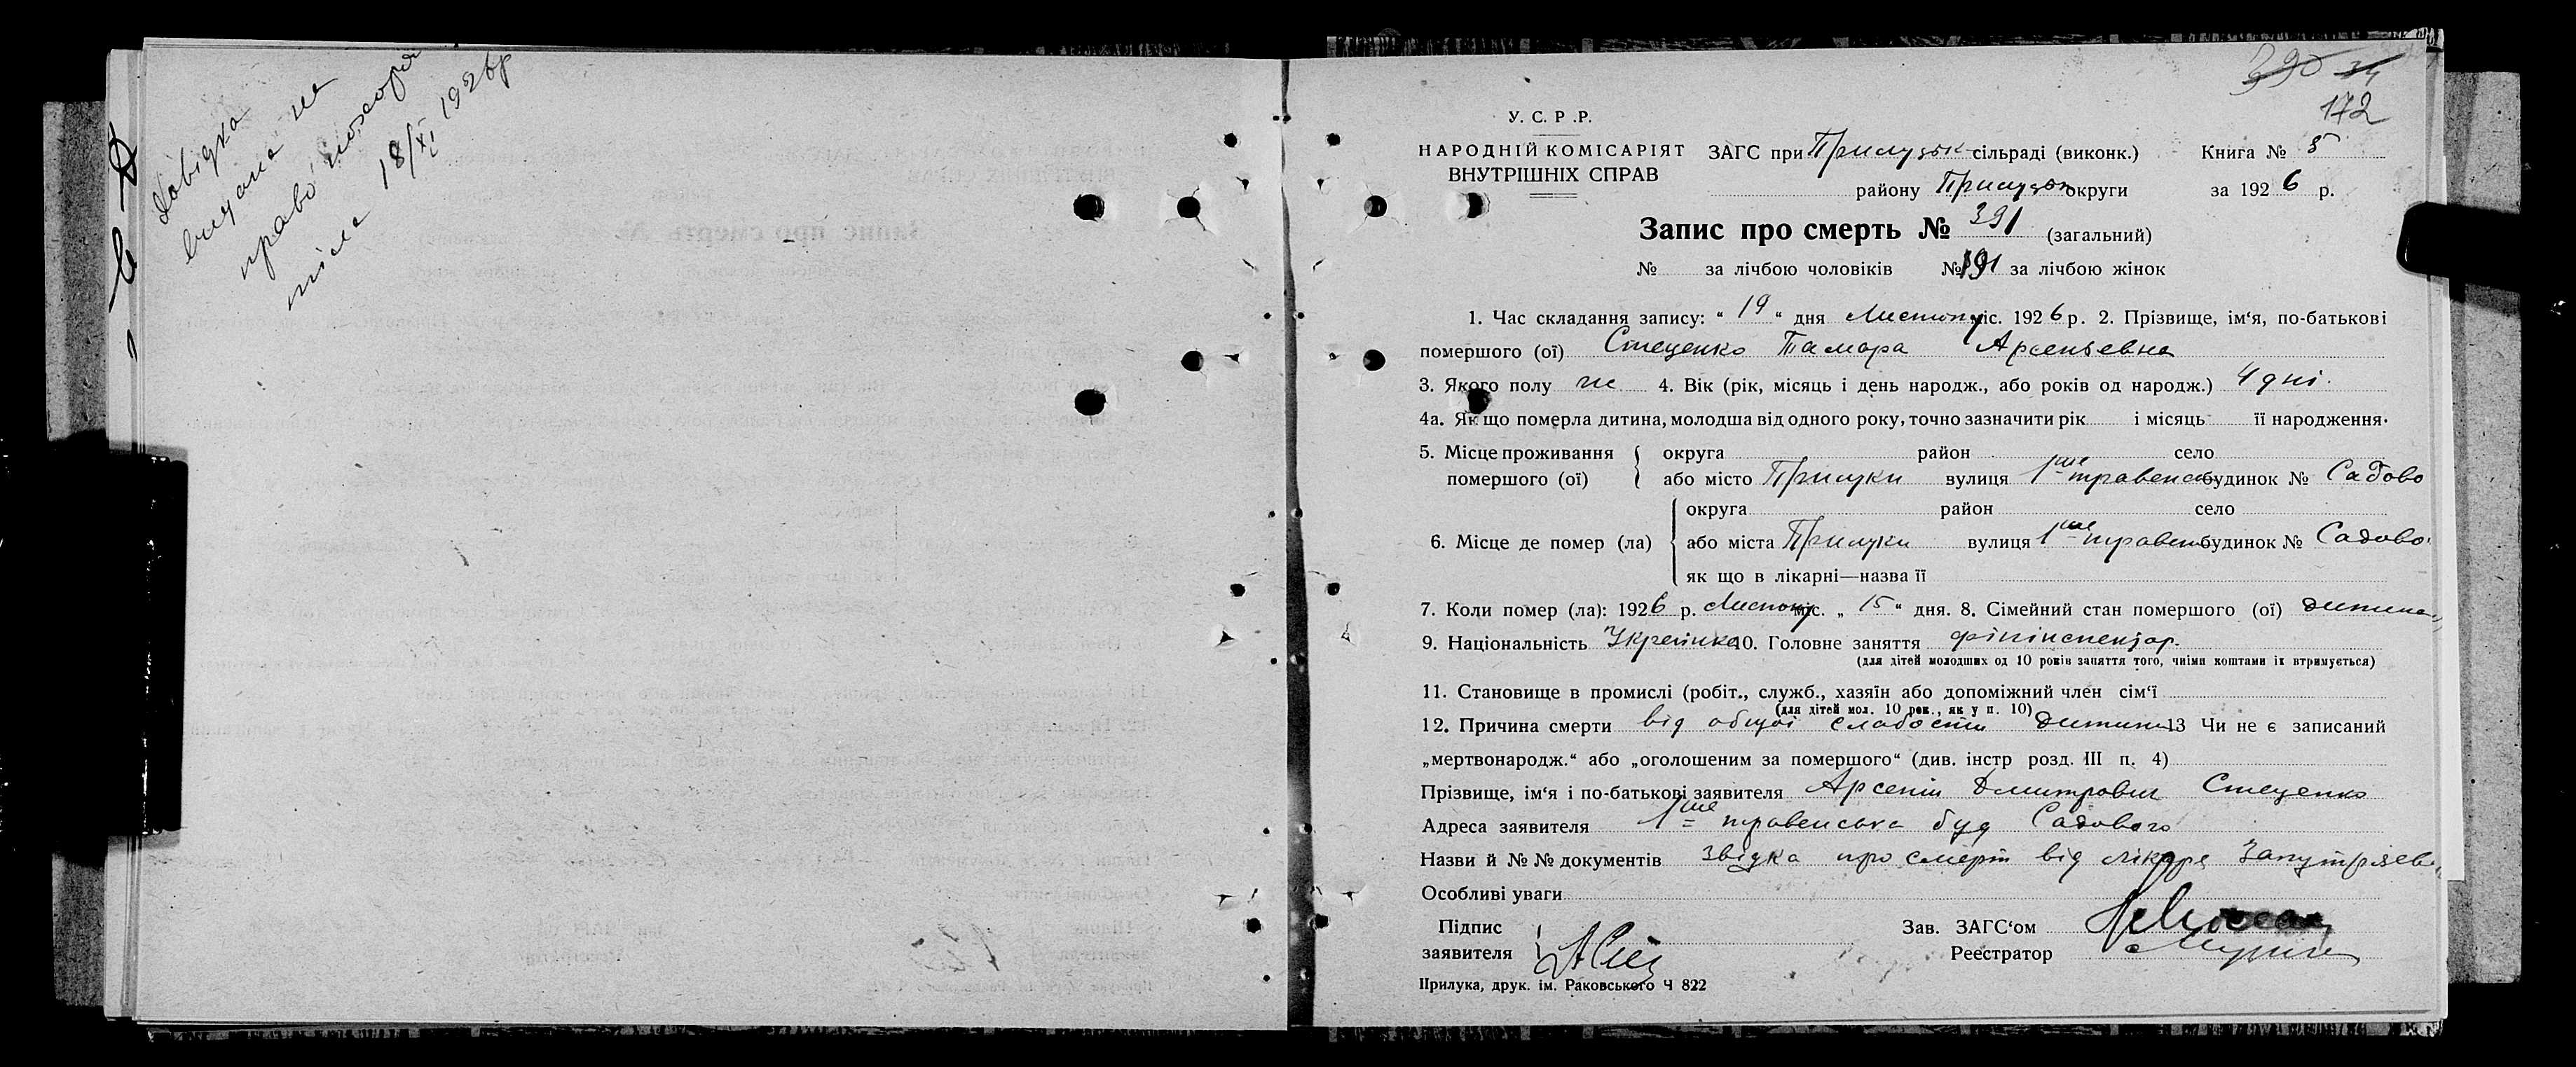 Довідка
видана на
право похорон
тіла 18/XI 1926р
390 34
172
У. С. Р .Р.
НАРОДНІЙ КОМІСАРІЯТ
ВНУТРІШНІХ СПРАВ
ЗАГС при Прилуцьк сільраді (виконк.) Книга № 5
району Прилуцьк округи за 1926 р.
Запис про смерть № 391 (загальний)
№ за лічбою чоловіків № 191 за лічбою жінок
1. Час складання запису: “ 19 “ дня Листопу міс. 1926 р. 2. Прізвище, ім‘я, по-батькові
помершого (ої) Стеценко Тамара Арсеньевна
3. Якого полу ж 4. Вік (рік, місяць і день народж., або років од народж.) 4 дні.
4а. Як що померла дитина, молодша від одного року, точно зазначити рік і місяць її народження.
5. Місце проживання помершого (ої) округа район село
або місто Прилуки вулиця 1ше травенс будинок № Садово
6. Місце де помер (ла) округа район село
або міста Прилуки вулиця 1ше травен будинок № Садово
як що в лікарні—назва її
7. Коли помер (ла): 1926 р. Листопу міс. „ 15 “ дня. 8. Сімейний стан помершого (ої) дитина
9. Національність Українка 10. Головне заняття фінінспектор.
(для дітей молодших од 10 років заняття того, чиїми коштами їх втримується)
11. Становище в промислі (робіт., служб., хазяїн або допоміжний член сім‘ї
(для дітей мол. 10 рок., як у п. 10)
12. Причина смерти від общої слабости дитини 13 Чи не є записаний
„мертвонародж.“ або „оголошеним за помершого“ (див. інстр розд. III п. 4)
Прізвище, ім‘я і по-батькові заявителя Арсеній Дмитрович Стеценко
Адреса заявителя 1ше травенська буд Садового
Назви й № № документів Звідка про смерт від лікаря
Особливі уваги
Підпис
заявителя
Зав. ЗАГС‘ом
Реєстратор
Прилука, друк. ім. Раковського Ч 822